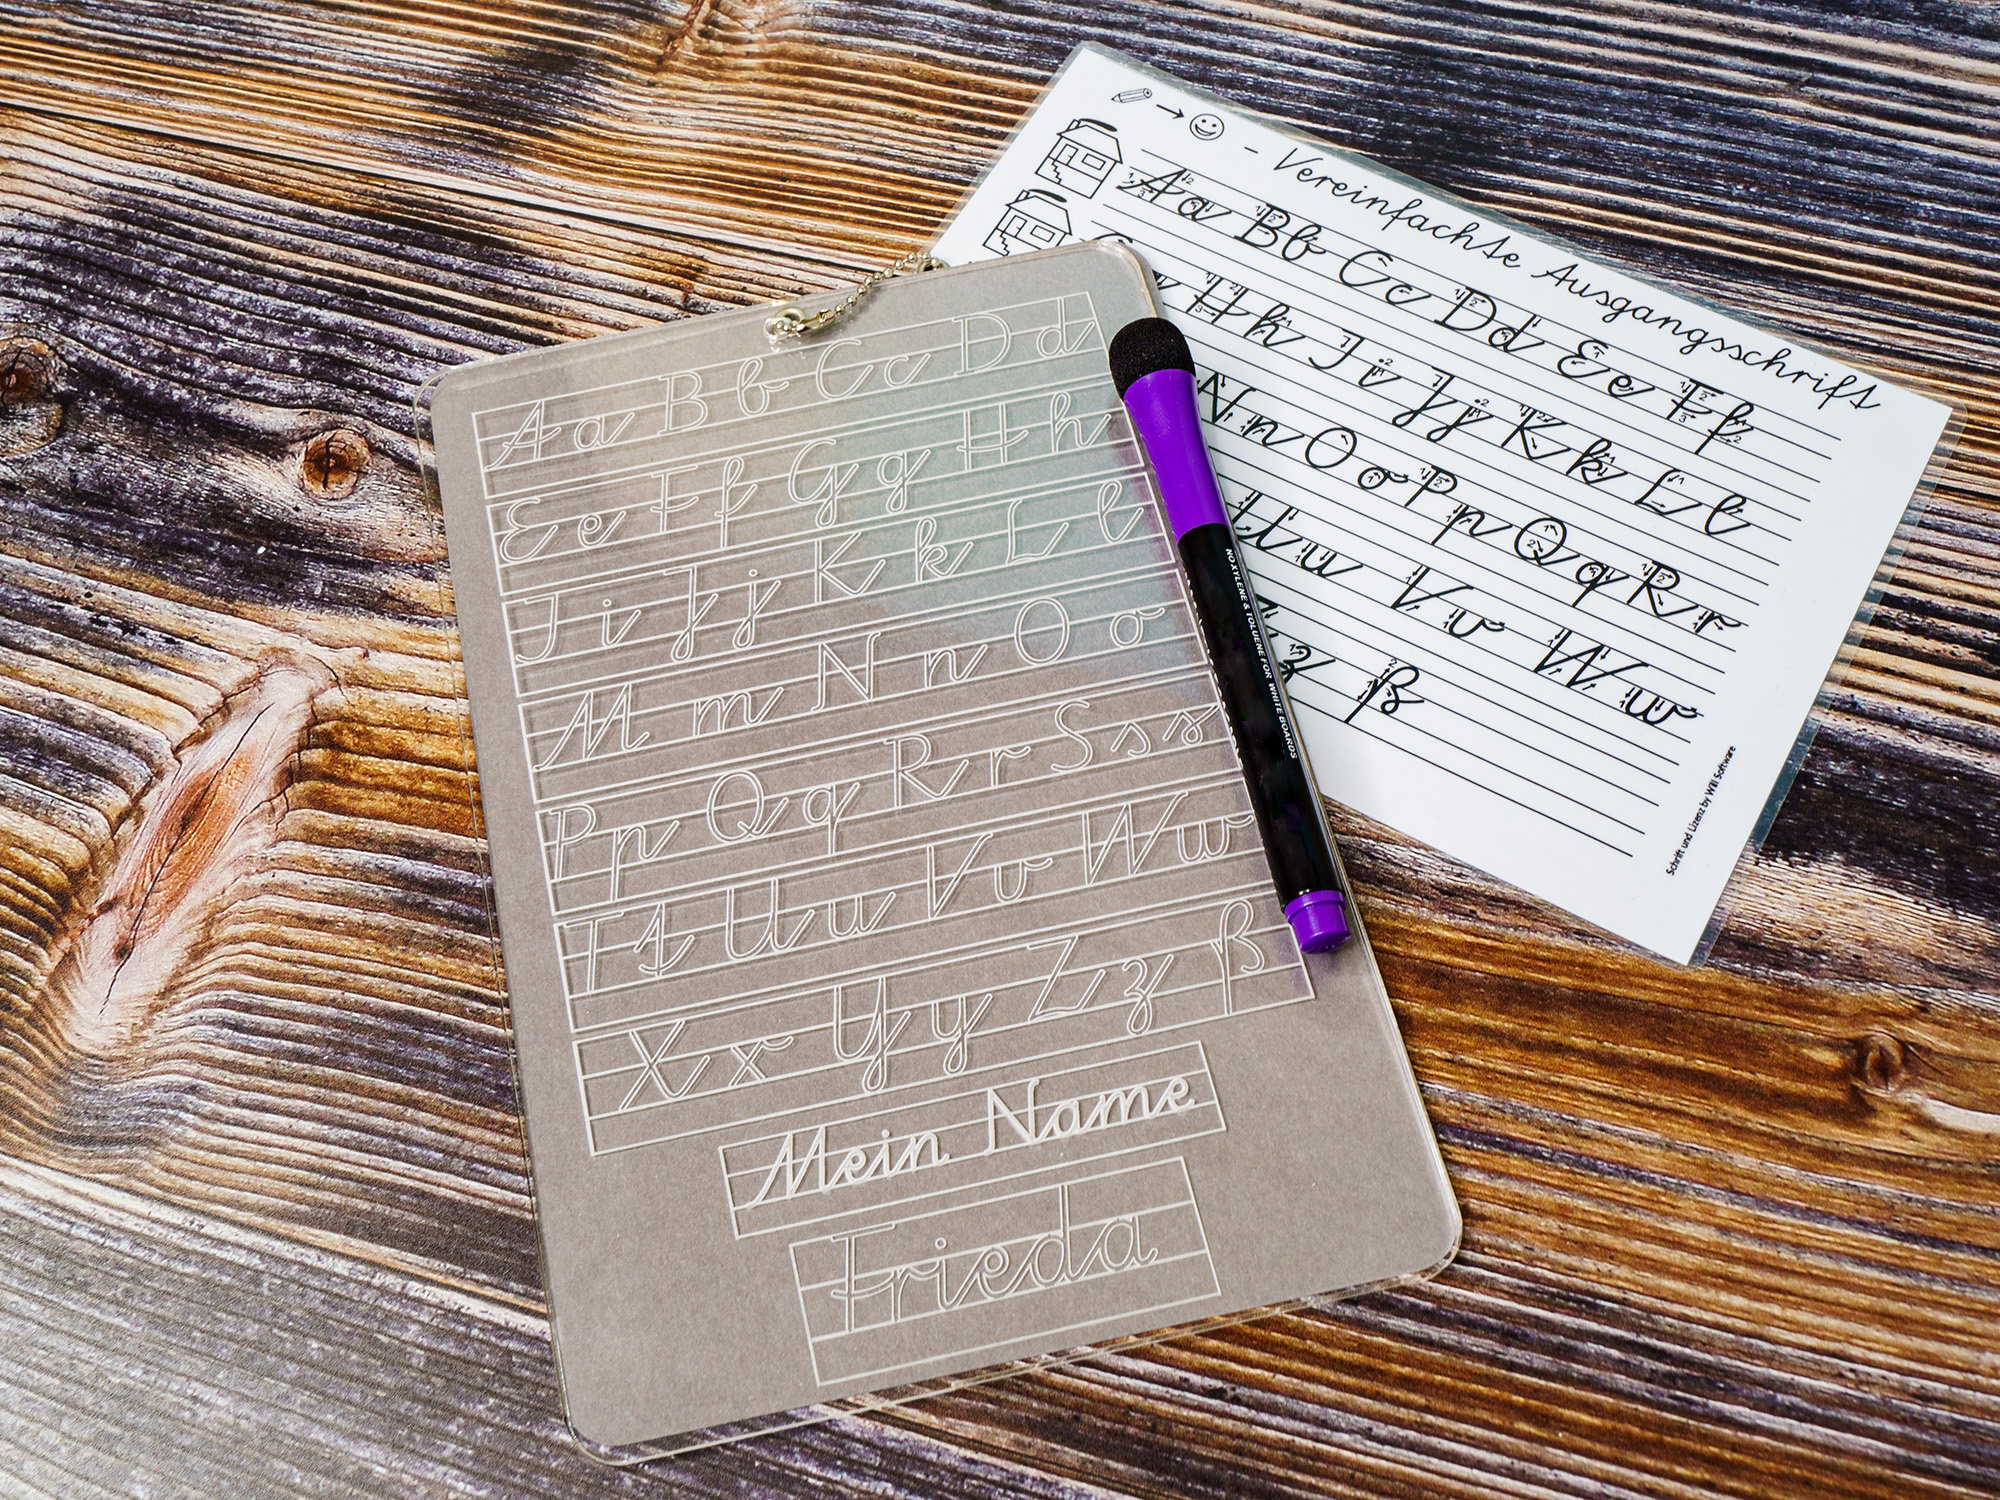 Aa Bb Cc Dd
Ee Ff Gg Hh
Ii Jj Kk Ll
Mm Nn Oo
Pp Qq Rr Sss
Tt Uu Vv Ww
Xx Yy Zz ß
Mein Name
Frieda
NO XYLENE & TOLUENE FOR WHITE BOARDS
- Vereinfachte Ausgangsschrift
Aa Bb Cc Dd Ee Ff
Hh Ii Jj Kk Ll
Nn Oo Pp Qq Rr
Uu Vv Ww
z ß
Schrift und Lizenz by Will Software